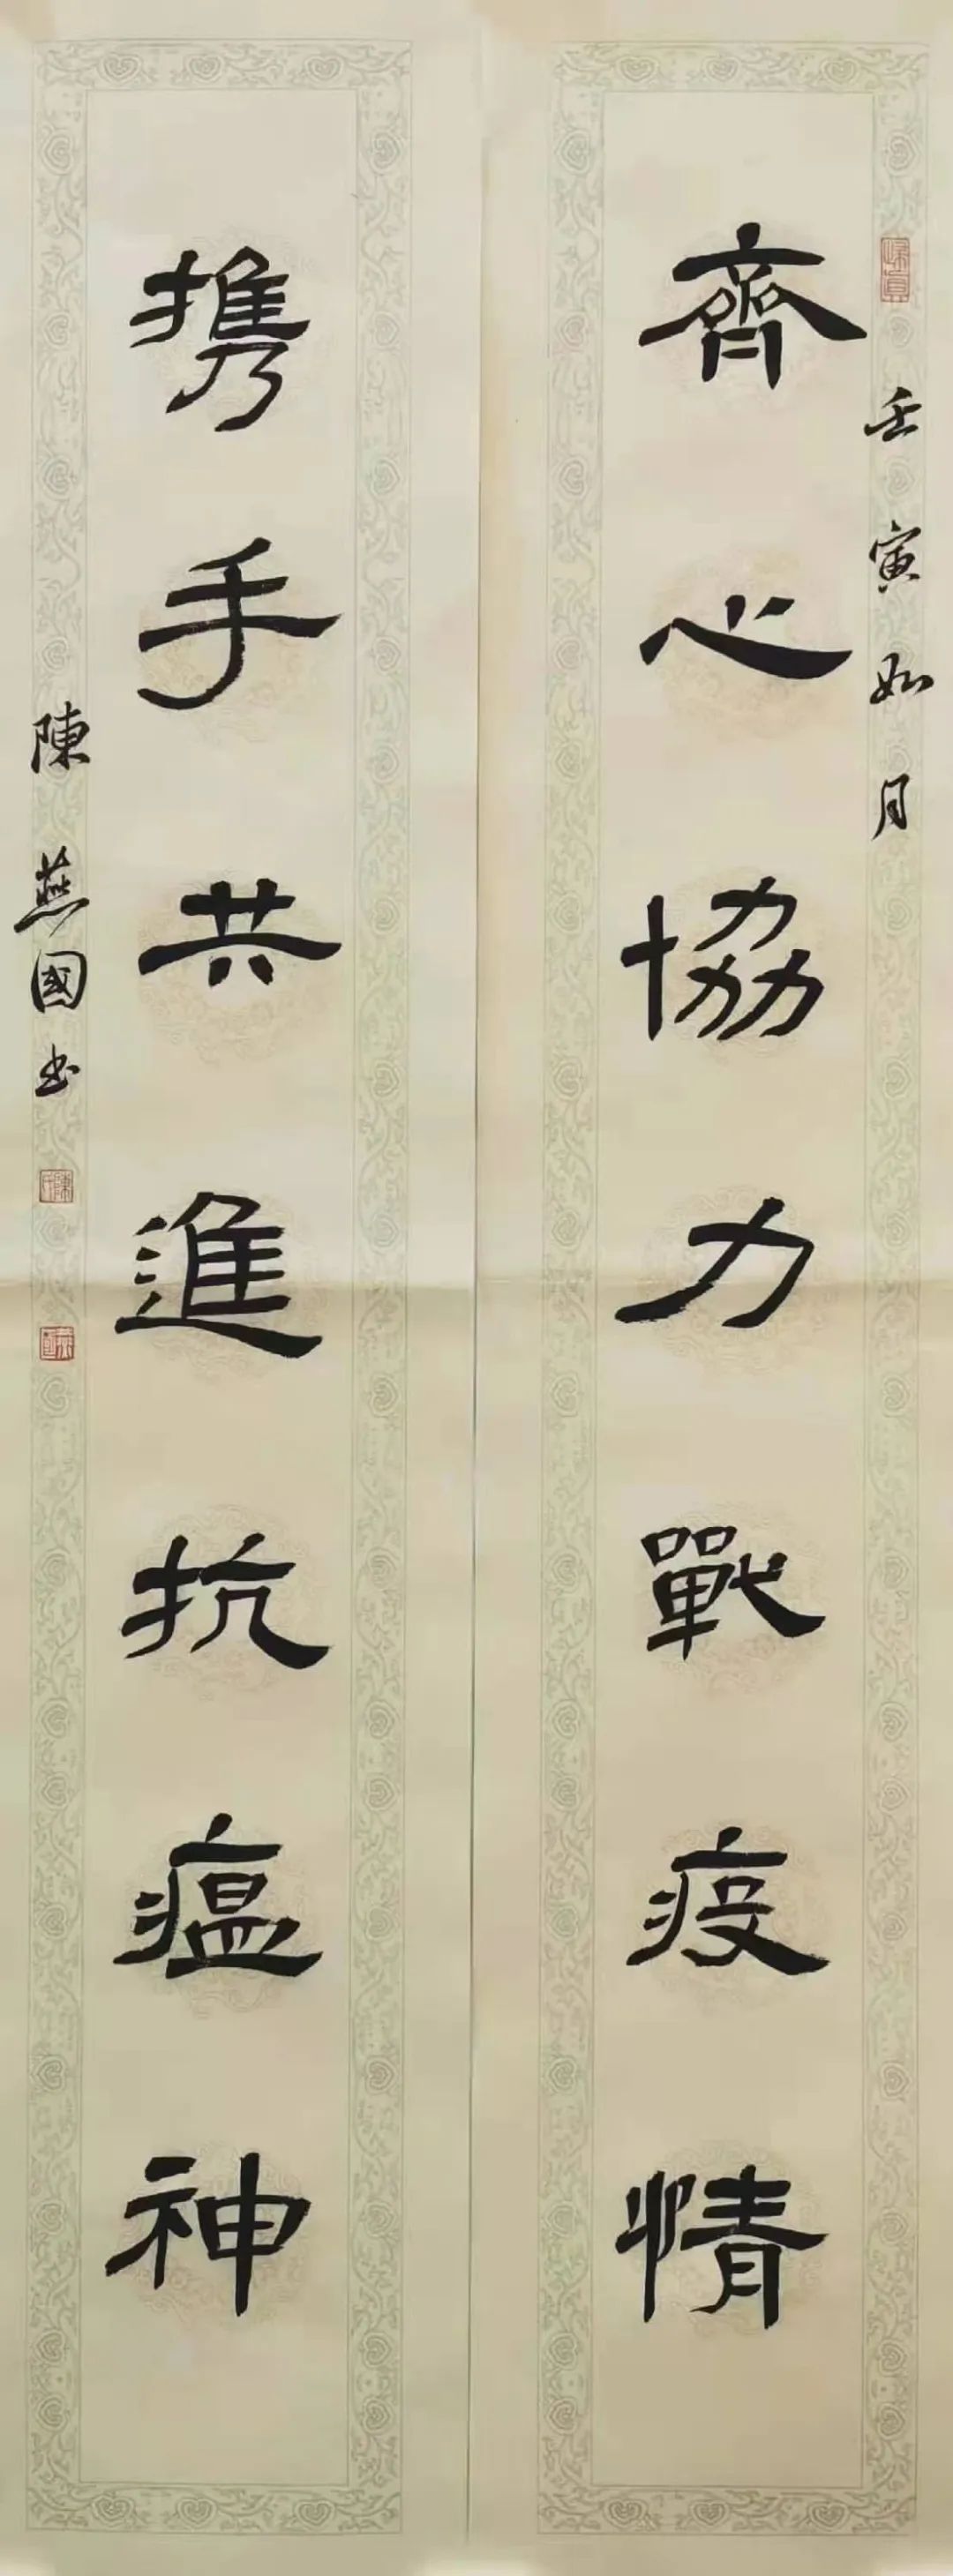 壬寅如月
齊心協力戰疫情
携手共進抗瘟神
陳燕國书